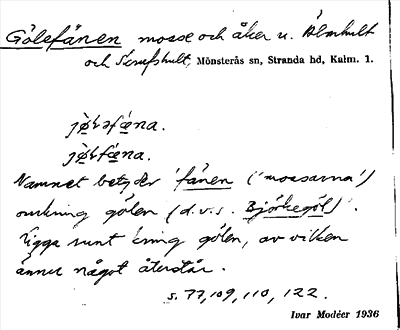 Gölefånen mosse och åker u. Älmhult
och Skrufshult, Mönsterås sn, Stranda hd, Kalm. l.
jø̀ɫəfǽna.
jø̀ɫfǽna.
Namnet betyder 'fånen ('mossarna')
omkring gölen (d.v.s. Bjärkegöl)'.
Ligga runt kring gölen, av vilken
ännu något återstår.
s. 77, 109, 110, 122.
Ivar Modéer 1936